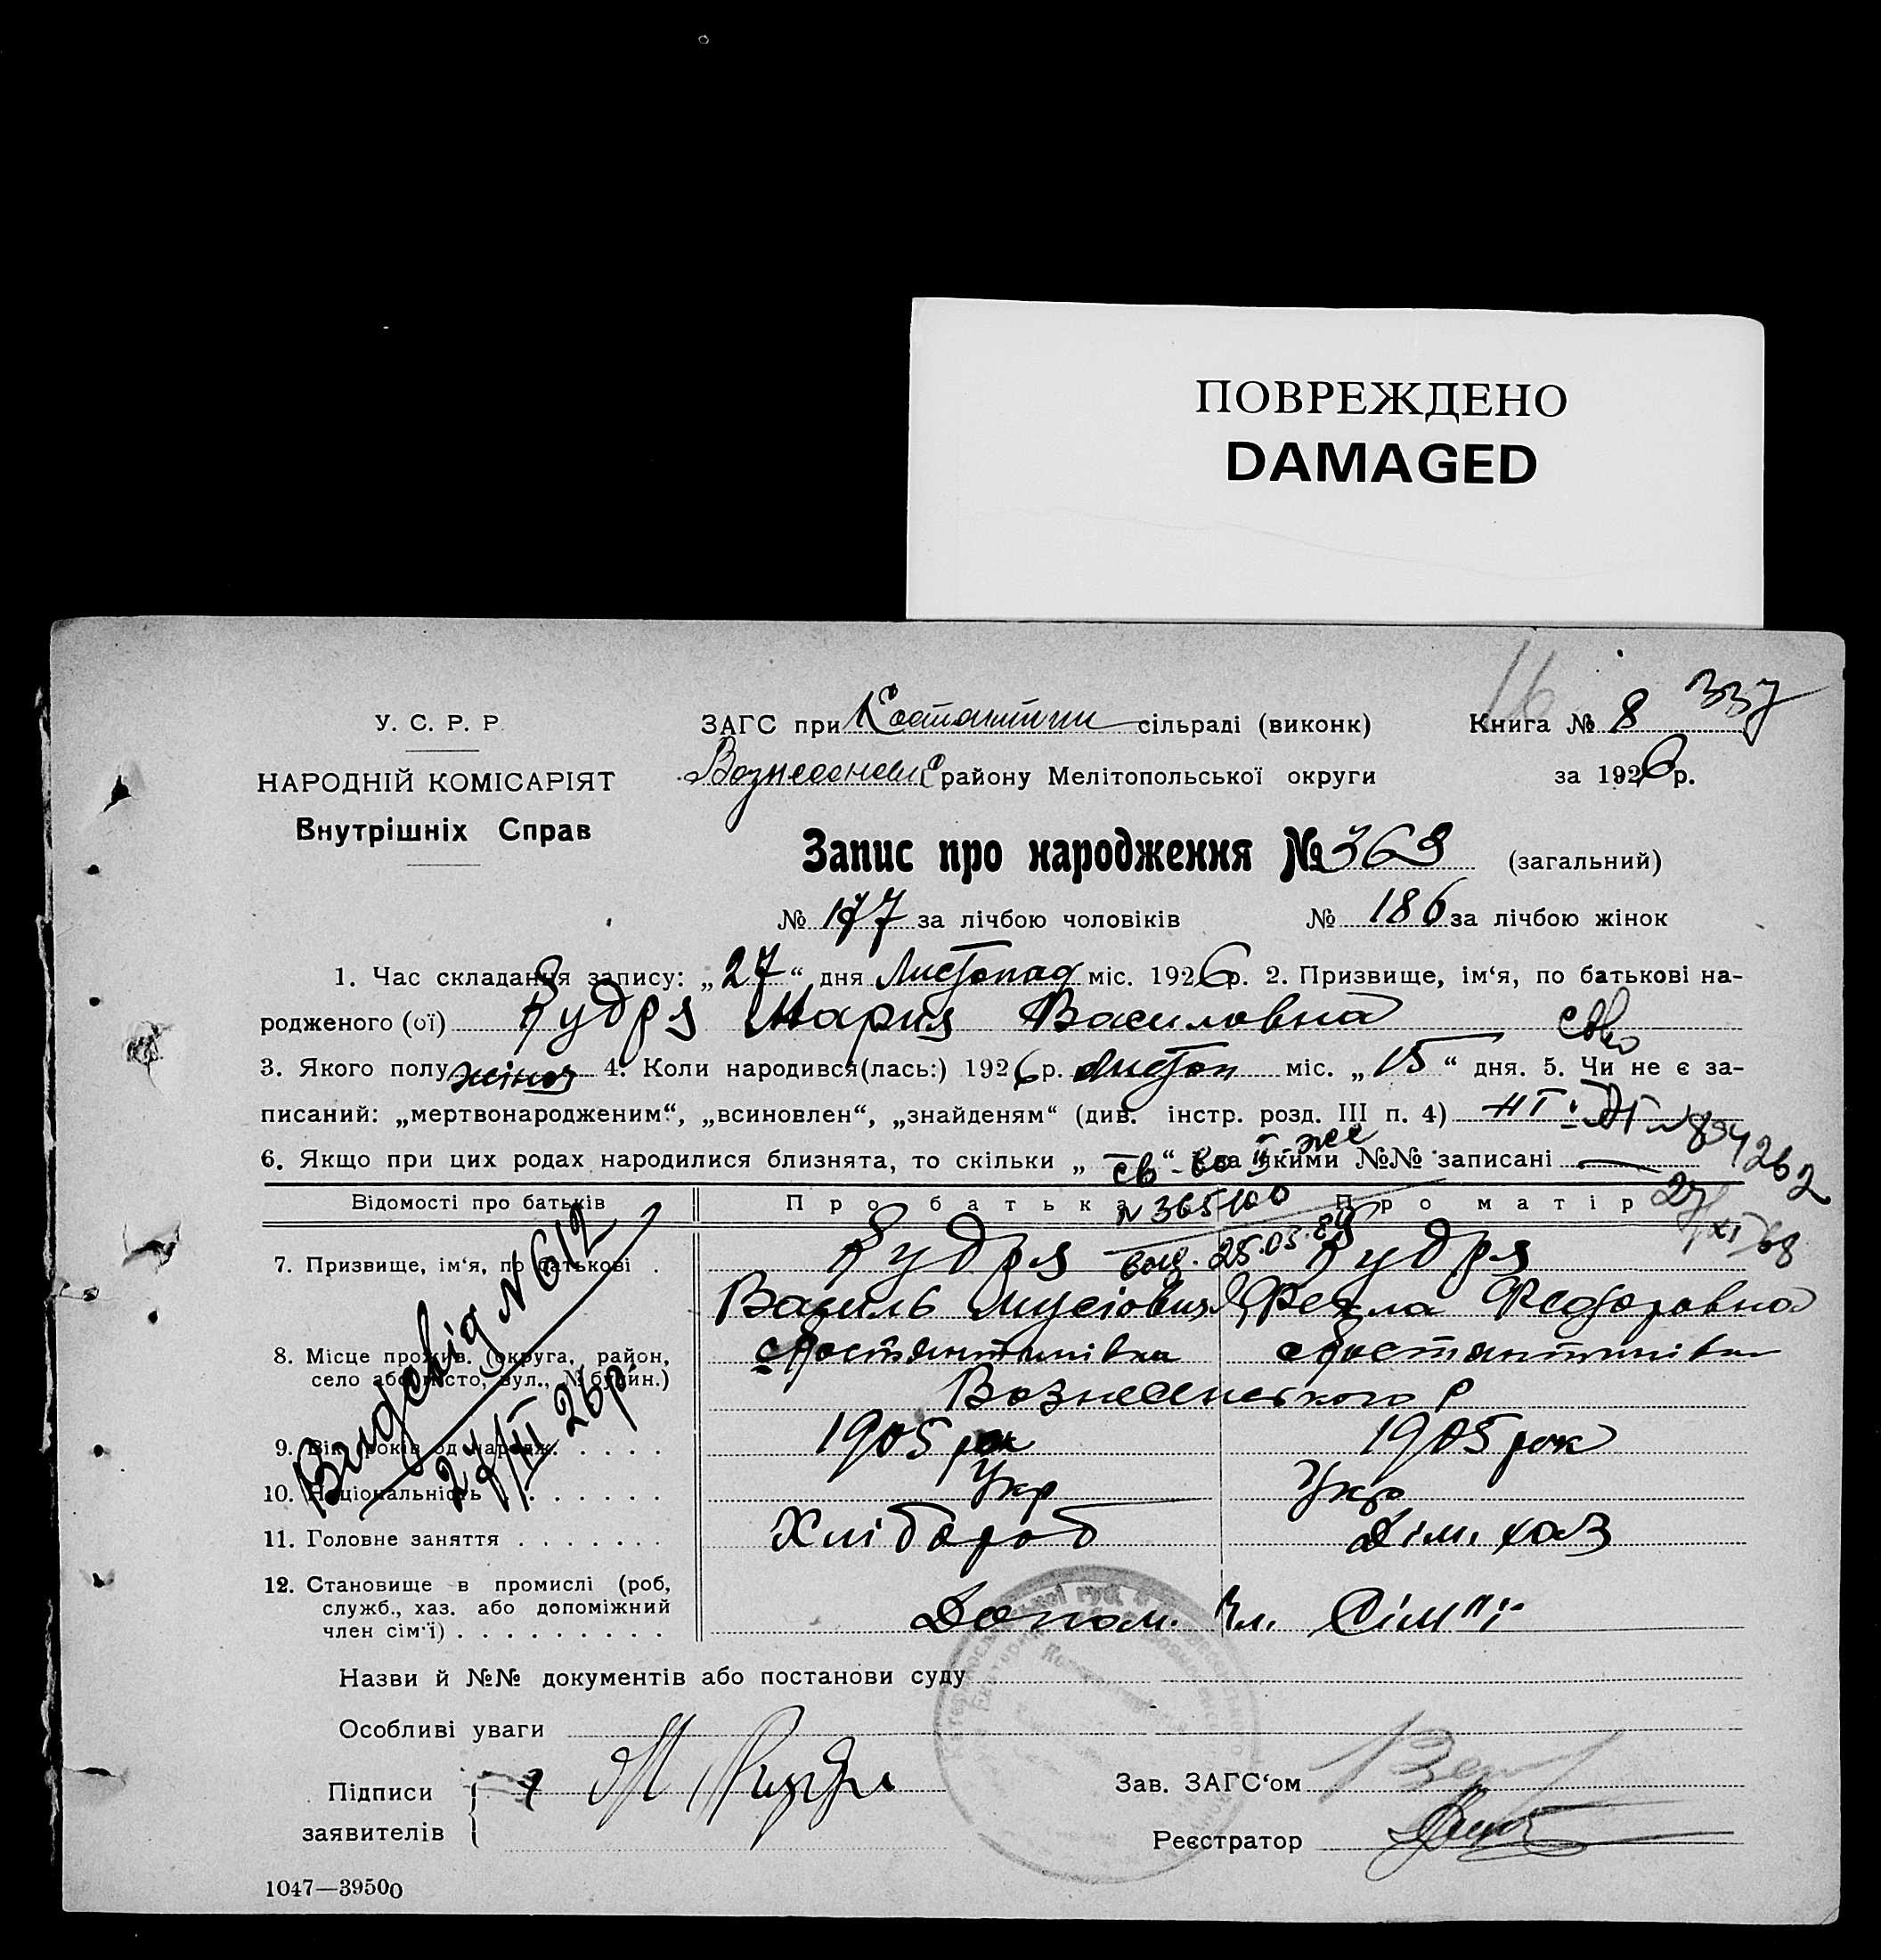 ПОВРЕЖДЕНО
DAMAGED
16
337
У. С. Р. Р.
ЗАГС при Костянтин сільраді (виконк)
Книга № 8
Вознесенськ району Мелітопольської округи
за 1926 р.
НАРОДНІЙ КОМІСАРІЯТ
Внутрішніх Справ
Запис про народження № 363 (загальний)
№ 177 за лічбою чоловіків № 186 за лічбою жінок
1. Час складання запису: „27“ дня Листопад міс. 1926 р. 2. Призвище, ім‘я, по батькові на-
родженого (ої) Кудря Мария Василовна
св-во
3. Якого полу жіноч 4. Коли народився(лась:) 1926 р. Листоп міс. „15“ дня. 5. Чи не є за-
писаний: „мертвонародженим“, „всиновлен“, „знайденям“ (див. інстр. розд. III п. 4)
6. Якщо при цих родах народилися близнята, то скільки „ “ та якими №№ записані
св-во II-же
№ 365100
выд. 25.03.
27/XI 68
Відомості про батьків
Про батька
Про матір
7. Призвище, ім‘я, по батькові .
Кудря
Василь Мусіович
Кудря
Фекла Федоровна
8. Місце прожив. (округа, район,
село або місто, вул., № будин.)
с Костянтинівка
с Костянтинівка
Вознесенського р
9. Вік (років од народж. . . . .
1905 рок
1905 рок
10. Національність . . . . . .
Укр
Укр
11. Головне заняття . . . . . . .
Хлібороб
Дім. хаз
12. Становище в промислі (роб,
служб., хаз. або допоміжний
член сім‘ї) . . . . . . . . .
Допом. чл. Сім"ї
Видсвід № 612
26 р.
Назви й №№ документів або постанови суду
Особливі уваги
Підписи
заявителів
М Кудря
Зав. ЗАГС‘ом
Реєстратор
1047—39500